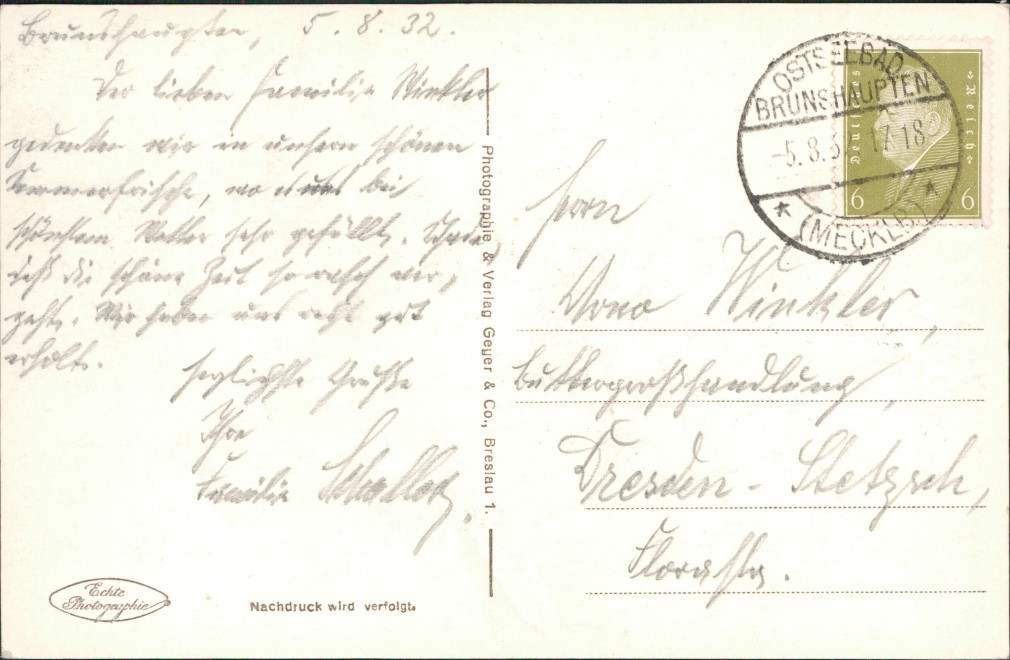 Brunshaupten, 5.8.32.
Der lieben Familie Winkler
gedenken wir in unserer schönen
Sommerfrische, wo es uns bei
schönstem Wetter sehr gefällt. Schade,
daß die schöne Zeit so rasch ver-
geht. Wir haben uns recht gut
erholt.
Herzlichste Grüße
Ihre
Familie
Photographie & Verlag Geyer & Co., Breslau 1.
OSTSEEBAD
BRUNSHAUPTEN
-5.8.3 17-18
(MECKLB.)
Deutsches Reich
6 6
Herrn
Arno Winkler,
Buttergroßhandlung,
Dresden - Stetzsch,
Florastr.
Echte
Photographie
Nachdruck wird verfolgt.